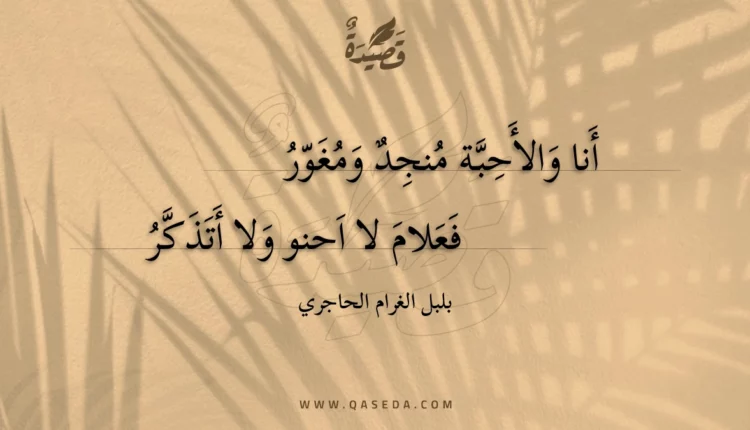 قَصِيدَةٌ
أَنا وَالأَحِبَّة مُنجِدٌ وَمُغَوّرُ
فَعَلامَ لا اَحنو وَلا أَتَذَكَّرُ
بلبل الغرام الحاجري
WWW.QASEDA.COM